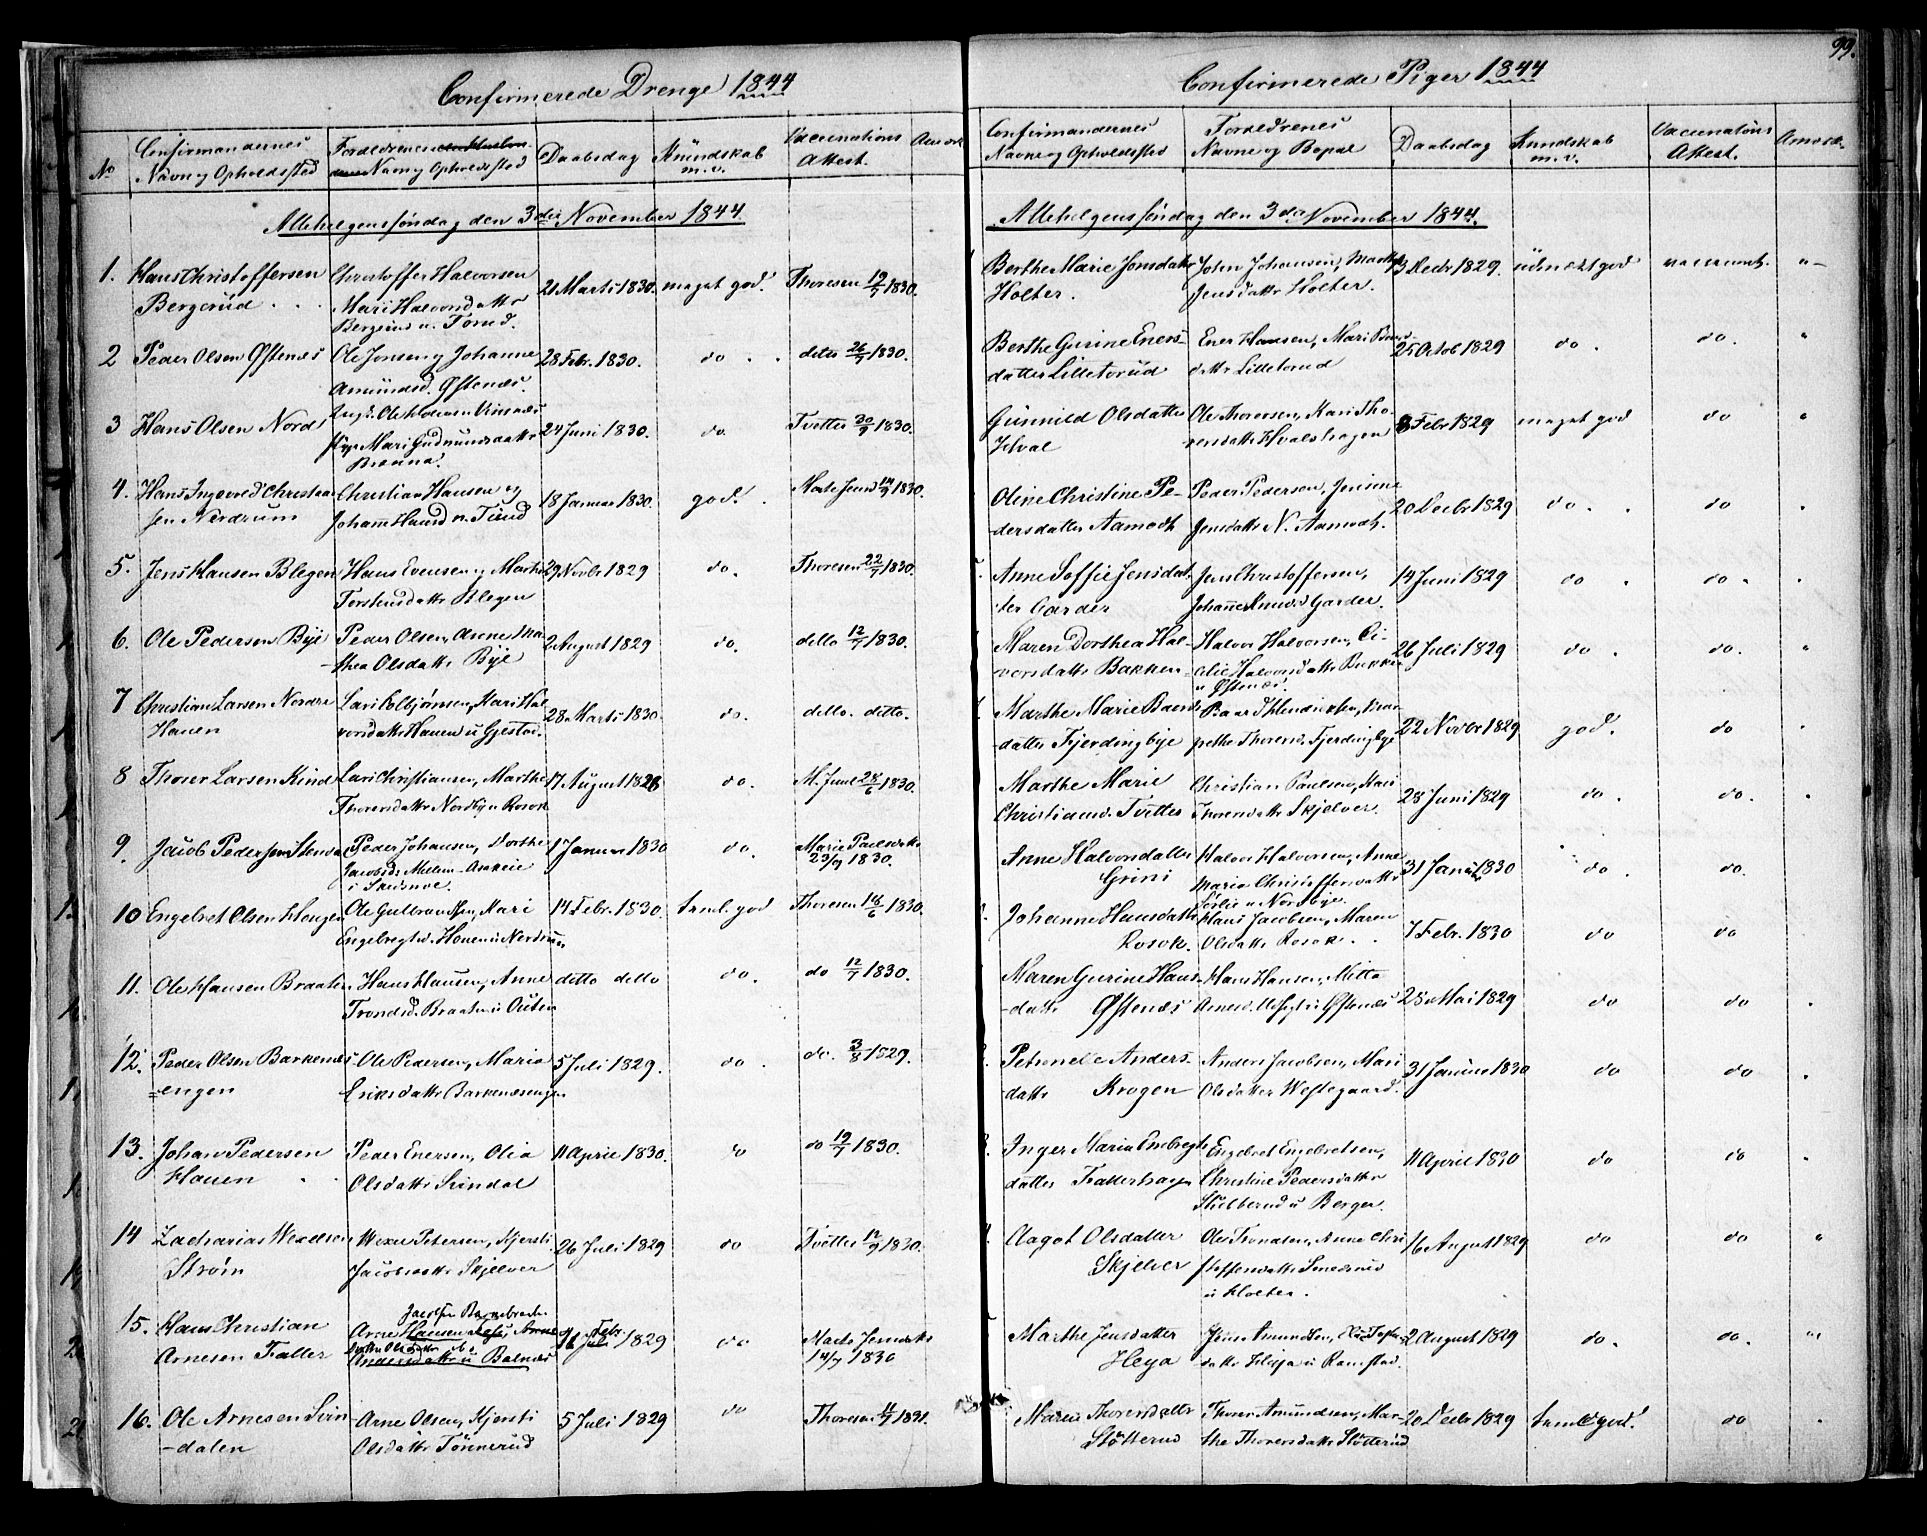 Confirmerede Drenge 1844
No
Confirmandernes
Navn og Opholdssted
Forældrenes
Navn og Opholdssted
Daabsdag
Kundskab
m. v.
Vaccinations
Attest.
Allehelgenssøndag den 3die November 1844.
1. Hans Christoffersen
Bergerud
Christoffer Halvorsen
Mari Halvorsdatter
Bergerud u. Tomd.
21 Marts 1830. meget god. Thoresen 19/7 1830.
2 Peder Olsen Østenæs
Ole Jensen og Johanne
Amundsd. Østenæs.
28 Febr. 1830. do. ditto 26/7 1830.
3 Hans Olsen Nord
Mari Gudmundsdatter
24 Juni 1830. do. Tvetter 30/9 1830.
4. Hans Ingevold Christian
sen Nerdrum
Christian Hansen og
18 Januar 1830. god. 14/9 1830.
5. Jens Hansen Blegen
Hans Evensen og Marthe
Torstensdatter Blegen
29 Novbr 1829 do. Thoresen 22/7 1830.
6. Ole Pedersen Bye
Peder Olsen, Anne Ma-
thea Olsdatter Bye
2 August 1829 do. ditto 12/7 1830.
7 Christian Larsen Nordre
Hauen
Lars Esbjørnsen, Kari Hal
vorsdatter Hauen u Gjestad.
28 Marts 1830. do. ditto. ditto.
8 Thorer Larsen Kind
Lars Christiansen, Marthe
Thorersdatter Nordby u Rosok
17 August 1828 do. M. Juul 28/6 1830.
9. Jacob Pedersen
Peder Johansen, Dorthe
i Skedsmoe.
1 Januar 1830 do. Marie Paulsdatter
23/9 1830.
10 Engebret Olsen Hauger
Ole Gulbrandsen, Mari
Engebregtsd. Hauen u Nerdrum
14 Febr. 1830 temel. god Thoresen 18/6 1830.
11. Ole Hansen Braaten
Hans Hansen, Anne
Trondsd. Braaten u Outen
ditto ditto do. do 12/7 1830.
12. Peder Olsen Barkenæs
-engen
Ole Pedersen, Maria
Eriksdatter Barkenæsengen
5 Juli 1829. do. do. 3/8 1829.
13. Johan Pedersen
Hauen
Peder Enersen, Olia
Olsdatter Svindal
11 April 1830. do do 19/7 1830.
14 Zacharias Wexelsen
Strøm
Wexel Petersen, Kjersti
Jacobsdatter Skjelver
26 Juli 1829 do Tvetter 12/9 1830.
15. Hans Christian
Arnesen Faller
Arne Hansen
Andersdatter u Balnæs
16 Febr 1829 do Marte Jensdatter
14/7 1830
16. Ole Arnesen Svin
-dalen
Arne Olsen, Kjersti
Olsdatter Tønnerud
5 Juli 1829 do Thoresen 1831.
99.
Confirmerede Piger 1844
Confirmandernes
Navne og Opholdssted
Forældrenes
Navne og Bopæl
Daabsdag
Kundskab
m. v.
Vaccinations
Attest.
Anmærk.
Allehelgenssøndag den 3die November 1844.
Berthe Marie Jensdatter
Holter.
John Johansen, Marthe
Jensdatter Holter.
13 Decbr 1829. udmerket god vaccineret. "
Berthe Gurine Eners
datter Lilletorud
Ener Hansen, Mari
datter Lilletorud
25 Octob 1829 do. do. "
Gunnild Olsdatter
Hval
Ole Thoresen, Kari Tho-
resdatter Hvalshagen
8 Febr 1829 meget god do "
Oline Christine Pe-
dersdatter Aamodt
Peder Pedersen, Jensine
Jensdatter N. Aamodt.
20 Decbr 1829 do. do
Anne Soffie Jensdat
ter Garder
Jens Christoffersen,
Johanne Knudsd Garder.
14 Juni 1829 do do
Maren Dorthea Hal-
vorsdatter Bakken
Halvor Halvorsen, Ci-
cilie Halvorsdatter Bakken
u Østenæs.
26 Juli 1829 do. do. "
Marthe Marie Baards
datter Fjerdingbye
Baard Hendriksen,
Thorersd. Fjerdingbye
22 Novbr 1829 god. do
Marthe Marie
Christiansd. Tvetter
Christian Paulsen, Kari
Thorersdatter Skjelver.
28 Juni 1829 do. do. "
Anne Halvorsdatter
Grini
Halvor Halvorsen, Anne
Maria Christoffersdatter
Sørlie u Nordbye.
31 Januar 1830 do. do.
Johanne Hansdatter
Rosok.
Hans Jacobsen, Maren
Olsdatter Rosok.
7 Febr. 1830 do do
Maren Gurine Hans
datter Østenæs
Hans Hansen, Mitta
Arnesd. u Østenæs
25 Mai 1829 do do
Petronelle Anders
datter Krogen
Anders Jacobsen, Mari
Olsdatter Westegaard.
31 Januar 1830 do do
Inger Maria Embregts
datter Fatterhagen
Engebret Engebretsen,
Christine Pedersdatter
Stubberud u Berger.
11 April 1830 do do
Aagot Olsdatter
Skjelver
Ole Trondsen, Anne Chri
stoffersdatter Smedsrud
u Holter.
16 August 1829 do do "
Marthe Jensdatter
Heya
Jens Amundsen,
datter Heya u Ramstad.
2 August 1829 do. do. "
Maren Thorersdatter
Støtterud
Thorer Amundsen, Mar-
the Thorersdatter Støtterud
20 Decbr 1829 temel. god. do "